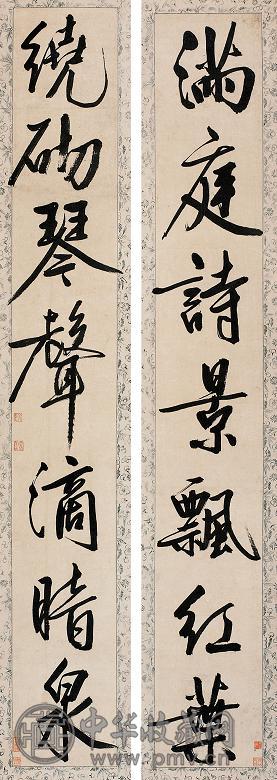 滿庭詩景飄紅葉
繞砌琴聲滴暗泉
中华收藏网